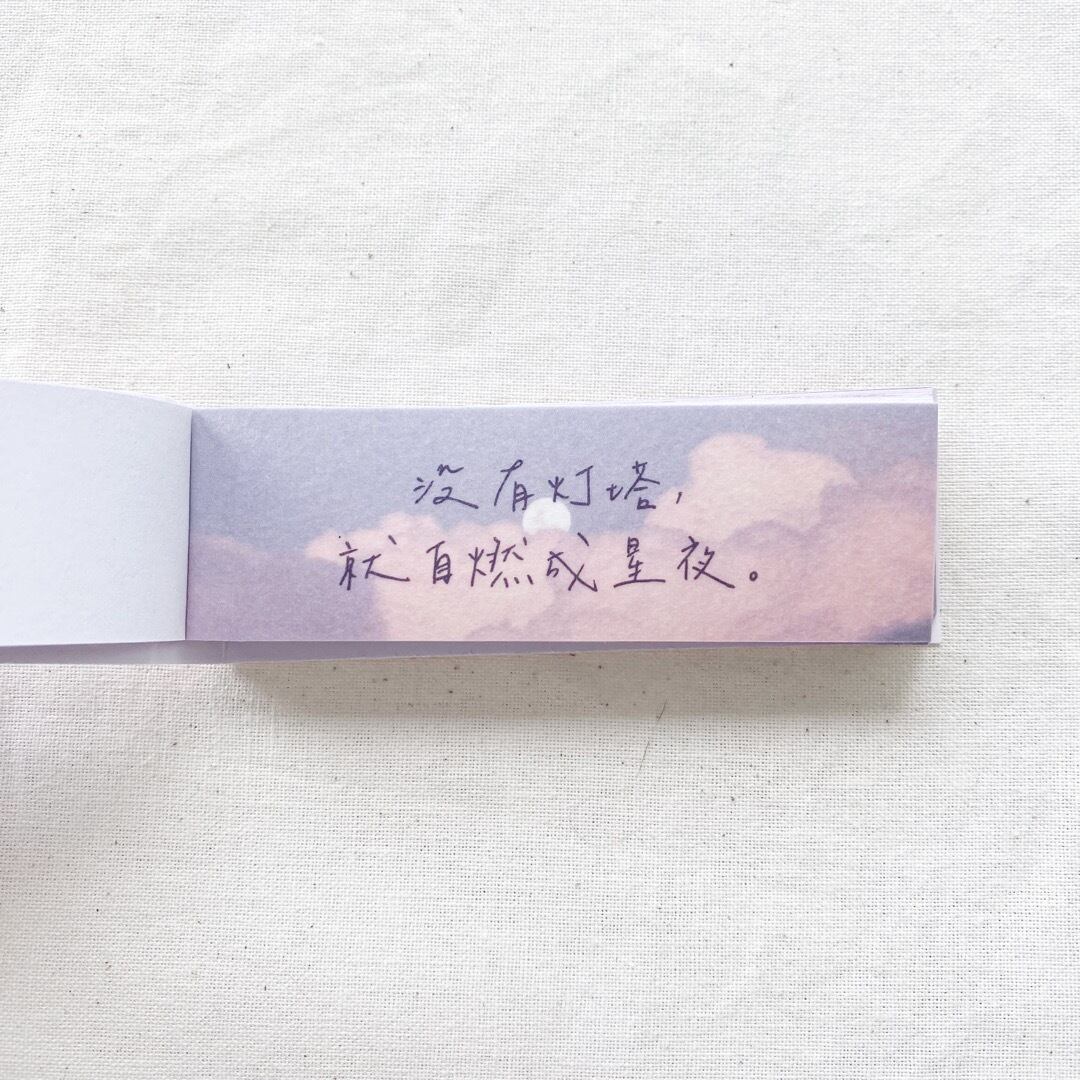 没有灯塔，
就自燃成星夜。